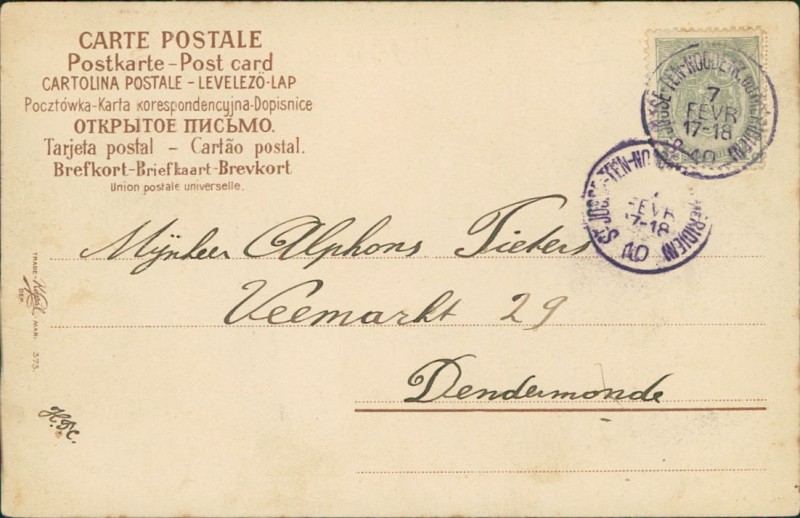 CARTE POSTALE
Postkarte - Post card
CARTOLINA POSTALE - LEVELEZŐ-LAP
Pocztówka-Karta korespondencyjna-Dopisnice
ОТКРЫТОЕ ПИСЬМО.
Tarjeta postal - Cartão postal.
Brefkort-Briefkaart-Brevkort
Union postale universelle.
7
FEVR
17-18
10
ST JOSSE-TEN-NO
MERIDIEN
FEVR
17-18
10
Mijnheer Alphons Pieters
Veemarkt 29
Dendermonde
TRADE MAR.
DEP.
373.